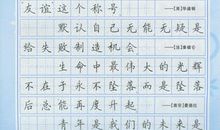 友谊这个称号 ——[美]华盛顿
默认自己无能无疑是
给失败制造机会
生命中最伟大的光辉
不在于永不坠落而是坠落
后总能再度升起 ——[南非]曼德拉
青年是我们的未来是